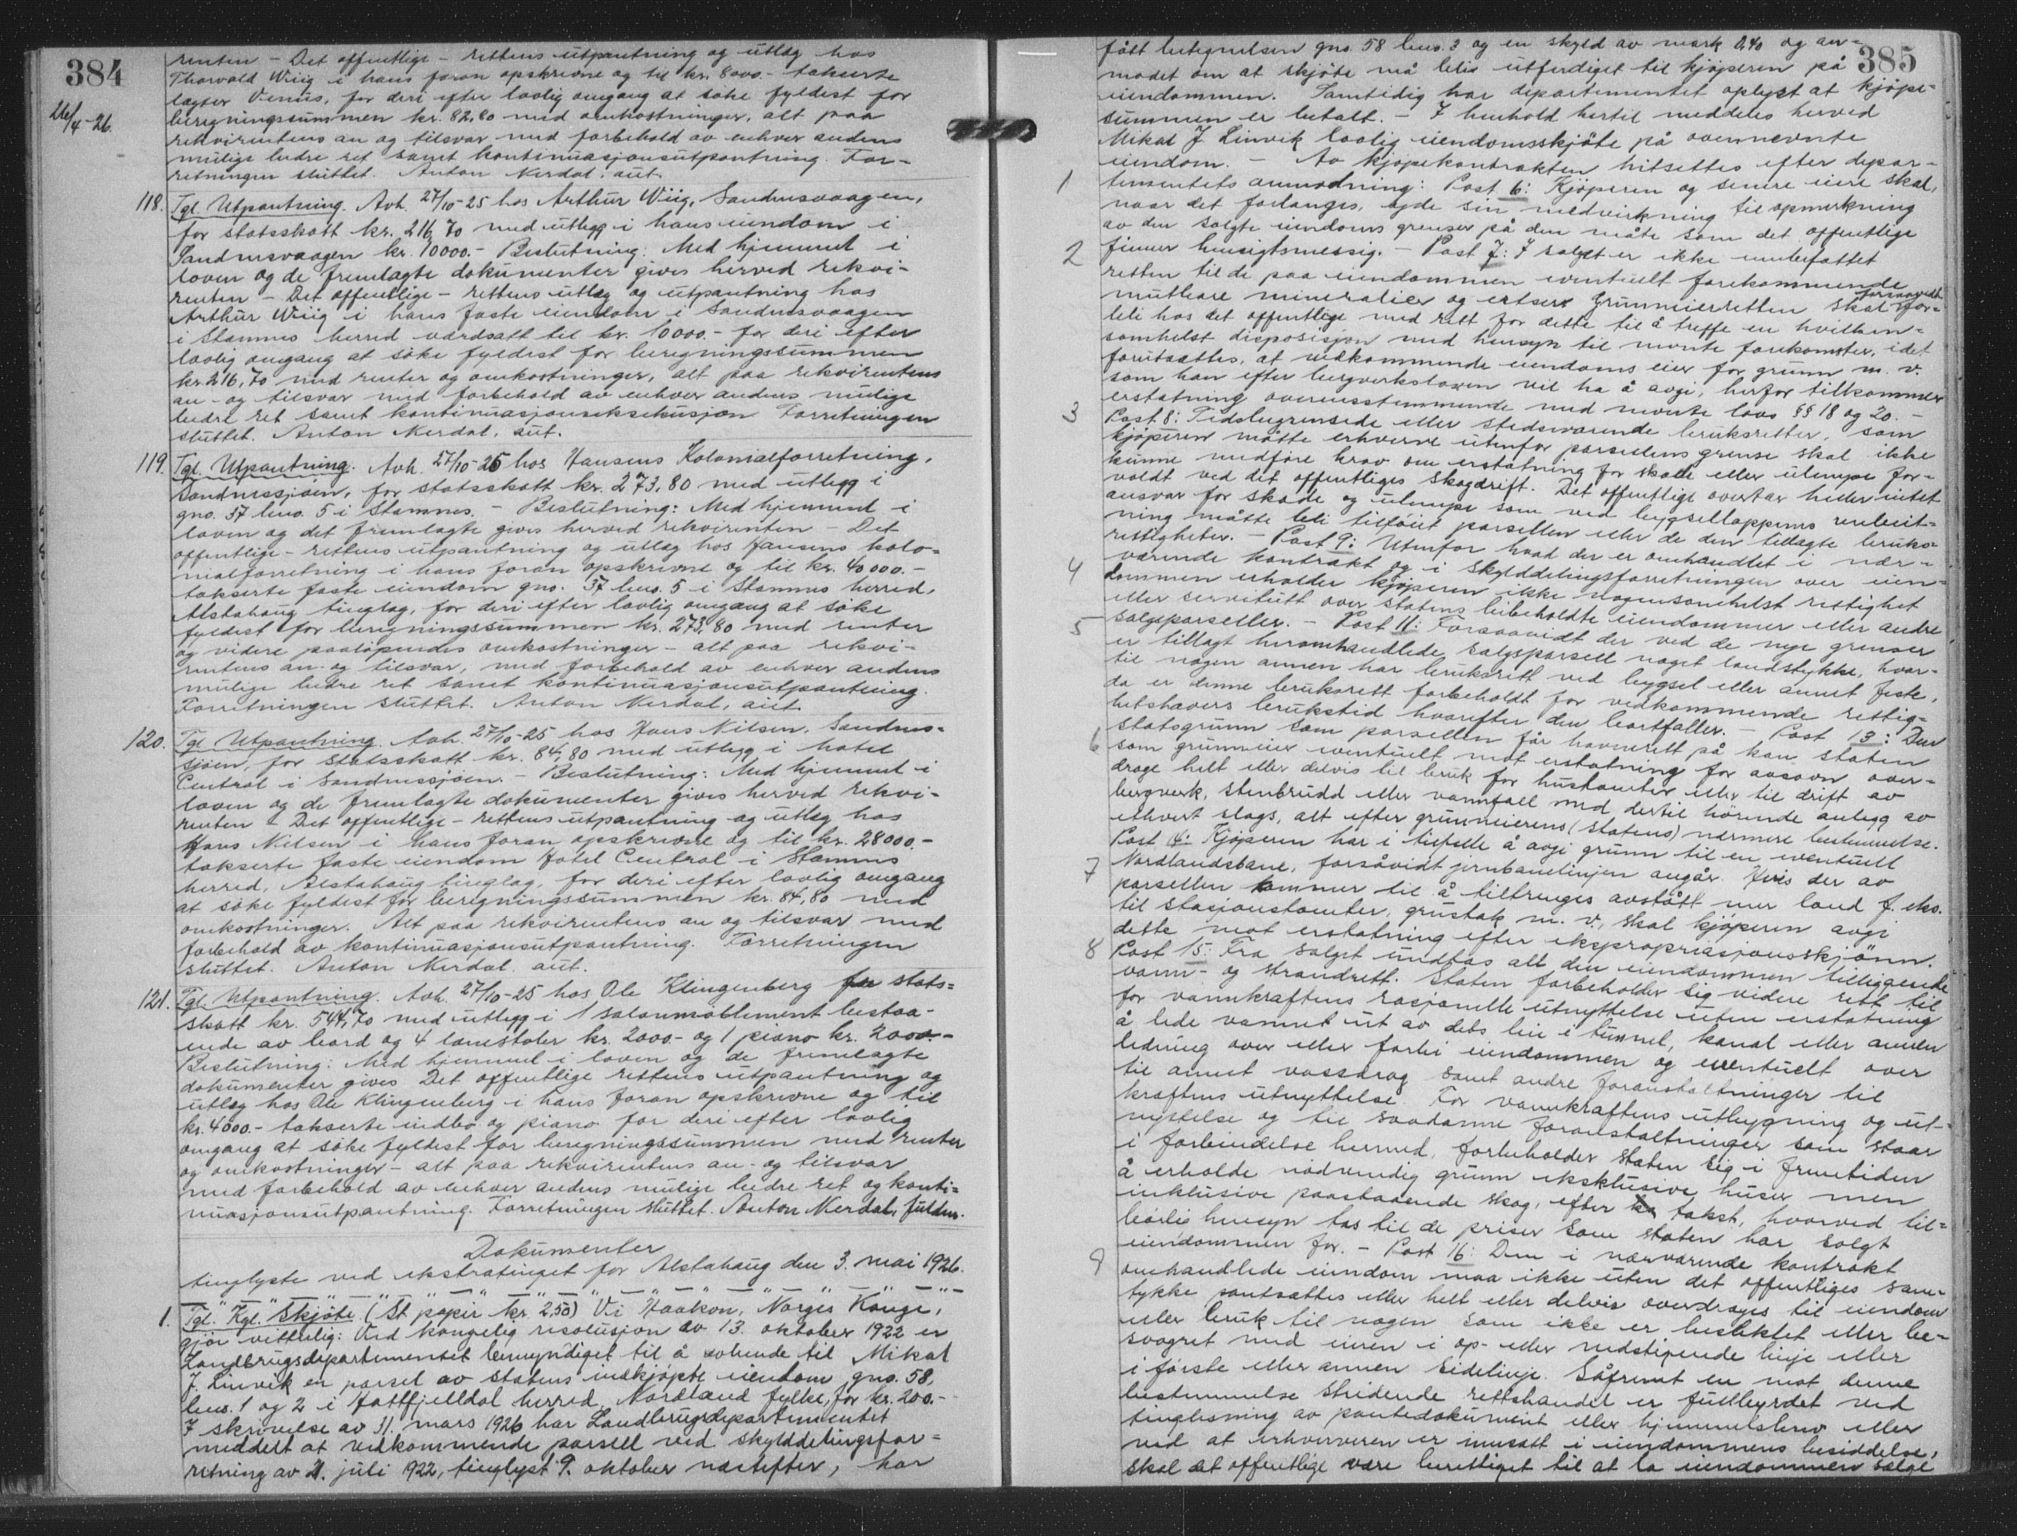 384
26/4-26.
renten - Det offentlige - rettens utpantning og utlæg hos
Thorvald Wiig i hans foran opskrevne og til kr. 8000.- takserte
lægter Venus, for deri efter lovlig omgang at søke fyldest for
beregningssummen kr. 82,80 med omkostninger, alt paa
rekvirentens an og tilsvar med forbehold av enhver andens
mulige bedre ret samt kontinuasjonsutpantning. For-
retningen sluttet. Anton Nerdal, aut.
118. Tgl. Utpantning. Avh. 27/10-25 hos Arthur Wiig, Sandnesvaagen,
for statsskatt kr. 216,70 med utlegg i hans eiendom i
Sandnesvaagen kr. 10000.- Beslutning: Med hjemmel i
loven og de fremlagte dokumenter gives herved rekvi-
renten - Det offentlige - rettens utlæg og utpantning hos
Arthur Wiig i hans faste eiendom i Sandnesvaagen
i Stamnes herred værdsatt til kr. 10000.- for deri efter
lovlig omgang at søke fyldest for beregningssummen
kr. 216,70 med renter og omkostninger, alt paa rekvirentens
an- og tilsvar med forbehold av enhver andens mulige
bedre ret samt kontinuasjonseksekusjon Forretningen
sluttet. Anton Nerdal, aut.
119. Tgl. Utpantning. Avh. 27/10-25 hos Hansens Kolonialforretning,
Sandnessjøen, for statsskatt kr. 273,80 med utlegg i
gno. 57 bno. 5 i Stamnes. - Beslutning: Med hjemmel i
loven og det fremlagte gives herved rekvirenten - Det
offentlige - rettens utpantning og utlæg hos Hansens kolo-
nialforretning i hans foran opskrevne og til kr. 40000.-
takserte faste eiendom gno. 57 bno. 5 i Stamnes herred,
Alstahaug tinglag, for deri efter lovlig omgang at søke
fyldest for beregningssummen kr. 273,80 med renter
og videre paaløpendes omkostninger - alt paa rekvi-
rentens an- og tilsvar, med forbehold av enhver andens
mulige bedre ret samt kontinuasjonsutpantning.
Forretningen sluttet. Anton Nerdal, aut.
120. Tgl. Utpantning. Avh. 27/10-25 hos Hans Nilsen, Sandnes-
sjøen, for statsskatt kr. 84,80 med utlegg i hotel
Central i Sandnessjøen. - Beslutning: Med hjemmel i
loven og de fremlagte dokumenter gives herved rekvi-
renten - Det offentlige - rettens utpantning og utlæg hos
Hans Nilsen i hans foran opskrevne og til kr. 28000.-
takserte faste eiendom Hotel Central i Stamnes
herred, Alstahaug tinglag, for deri efter lovlig omgang
at søke fyldest for beregningssummen kr. 84,80 med
omkostninger. Alt paa rekvirentens an og tilsvar med
forbehold av kontinuasjonsutpantning. Forretningen
sluttet. Anton Nerdal. aut.
121. Tgl. Utpantning. Avh. 27/10-25 hos Ole Klingenberg for stats-
skatt kr. 544,70 med utlegg i 1 salonmøblement bestaa-
ende av bord og 4 lænestoler kr. 2000.- og 1 piano kr. 2000.-
Beslutning: Med hjemmel i loven og de fremlagte
dokumenter gives Det offentlige rettens utpantning og
utlæg hos Ole Klingenberg i hans foran opskrevne og til
kr. 4000.- takserte indbo og piano for deri efter lovlig
omgang at søke fyldest for beregningssummen med renter
og omkostninger - alt paa rekvirentens an- og tilsvar
med forbehold av enhver andens mulige bedre ret og konti-
nuasjonsutpantning. Forretningen sluttet. Anton Nerdal, fuldm.
Dokumenter
tinglyste ved ekstratinget for Alstahaug den 3. mai 1926.
1. Tgl. Kgl. Skjøte (St. papir kr. 2,50) Vi Haakon, Norges Konge,
gjør vitterlig: Ved kongelig resolusjon av 13. oktober 1922 er
Landbrugsdepartementet bemyndiget til å avhende til Mikal
J. Linvik en parsel av statens indkjøpte eiendom gno. 58,
bno. 1 og 2 i Hattfjelldal herred, Nordland fylke, for kr. 200.-
I skrivelse av 31. mars 1926 har Landbrugsdepartementet
meddelt at vedkommende parsell ved skylddelingsfor-
retning av 21. juli 1922, tinglyst 9. oktober næstefter, har
385
fått betegnelsen gno. 58 bno. 3 og en skyld av mark 0,40 og an-
modet om at skjøte må bli utferdiget til kjøperen på
eiendommen. Samtidig har departementet oplyst at kjøpe-
summen er betalt. - I henhold hertil meddeles herved
Mikal J. Linvik lovlig eiendomsskjøte på ovennevnte
eiendom. - Av kjøpekontrakten hitsettes efter depar-
1 tementets anmodning: Post 6: Kjøperen og senere eiere skal,
naar det forlanges, yde sin medvirkning til opmerkning
av den solgte eiendoms grenser på den måte som det offentlige
2 finner hensigtsmessig. - Post 7: I salget er ikke innbefattet
retten til de paa eiendommen eventuelt forekommende
mutbare mineralier og ertser. Grunneierretten skal forsaavidt for-
bli hos det offentlige med rett for dette til å treffe en hvilken-
somhelst disposisjon med hensyn til nevnte forekomster, idet
forutsættes, at vedkommende eiendoms eier for grunn m. v.
som han efter bergverksloven vil ha å avgi, herfor tilkommer
erstatning overensstemmende med nevnte lovs §§ 18 og 20. -
3 Post 8: Tidsbegrensede eller stedsvarende bruksretter, som
kjøperen måtte erhverve utenfor parselens grense skal ikke
kunne medføre krav om erstatning for skade eller ulempe for-
voldt ved det offentliges skogdrift. Det offentlige overtar heller intet
ansvar for skade og ulempe som ved bygselloppens renbeit-
ning måtte bli tilføiet parsellen eller de den tillagte bruks-
rettigheter. - Post 9: Utenfor hvad der er omhandlet i nær-
4 værende kontrakt og i skylddelingsforretningen over eien-
dommen erholder kjøperen ikke nogensomhelst rettighet
eller servitutt over statens beibeholdte eiendommer eller andre
5 salgsparseller. - Post 11: Forsaavidt der ved de nye grenser
er tillagt heromhandlede salgsparsell noget landstykke, hvor-
til nogen annen har bruksrett ved bygsel eller annet feste,
da er denne bruksrett forbeholdt for vedkommende rettig-
hetshavers brukstid hvorefter den bortfaller. - Post 13: Den
6 statsgrunn som parsellen får havnerett på kan staten
som grunneier eventuelt mot erstatning for avsavn over-
drage helt eller delvis til bruk for hustomter eller til drift av
bergverk, stenbrudd eller vannfall med dertil hørende anlegg av
ethvert slags, alt efter grunneierens (statens) nærmere bestemmelse.
7 Post 14: Kjøperen har i tilfelle å avgi grunn til en eventuell
Nordlandsbane, forsåvidt jernbanelinjen angår. Hvis der av
parsellen kommer til å tiltrenges avstått mer land f. eks.
til stasjonstomter, grustak m. v., skal kjøperen avgi
dette mot erstatning efter ekspropriasjonsskjønn.
8 Post 15: Fra salget undtas alt den eiendommen tilliggende
vann- og strandrett. Staten forbeholder sig videre rett til
for vannkraftens rasjonelle utnyttelse uten erstatning
å lede vannet ut av dets leie i tunnel, kanal eller annen
ledning over eller forbi eiendommen og eventuelt over
til annet vassdrag samt andre foranstaltninger til
kraftens utnyttelse. For vannkraftens utbygning og ut-
nyttelse og til saadanne foranstaltninger som staar
i forbindelse hermed, forbeholder staten sig i fremtiden
å erholde nødvendig grunn eksklusive huser men
inklusive paastaaende skog, efter takst, hvorved til-
børlig hensyn tas til de priser som staten har solgt
9 eiendommen for. - Post 16: Den i nærværende kontrakt
omhandlede eiendom maa ikke uten det offentliges sam-
tykke pantsættes eller helt eller delvis overdrages til eiendom
eller bruk til nogen som ikke er beslektet eller be-
svogret med eieren i op- eller nedstigende linje eller
i første eller annen sidelinje. Såfremt en mot denne
bestemmelse stridende rettshandel er fullbyrdet ved
tinglesning av pantedokument eller hjemmelsbrev eller
ved at erhververen er innsatt i eiendommens besiddelse,
skal det offentlige være berettiget til at la eiendommen sælge